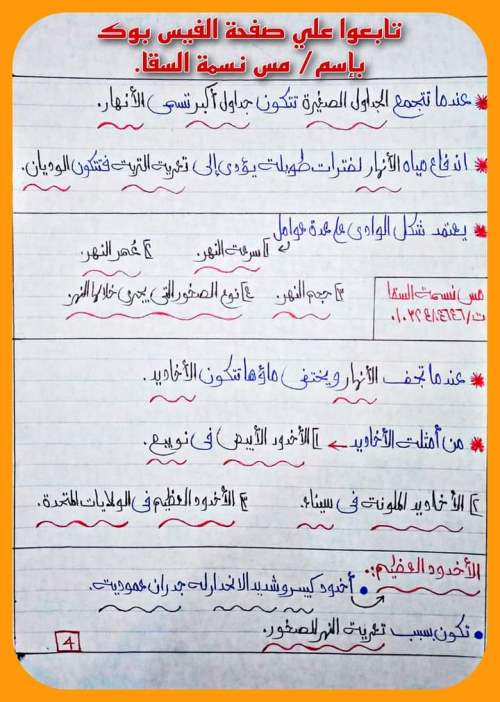 تابعوا علي صفحة الفيس بوك
بإسم/ مس نسمة السقا.
عندما تتجمع الجداول الصغيرة تتكون جداول أكبر تسمى الأنهار.
اندفاع مياه الأنهار لفترات طويلة يؤدى إلى تعرية التربة فتتكون الوديان.
يعتمد شكل الوادى على عدة عوامل
١] سرعة النهر. ٢] عُمر النهر.
٣] حجم النهر. ٤] نوع الصخور التى يجرى خلالها النهر.
مس نسمة السقا
عندما تجف الأنهار ويختفى ماؤها تتكون الأخاديد.
من أمثلة الأخاديد ← ١] الأخدود الأبيض فى نويبع.
٢] الأخاديد الملونة فى سيناء. ٣] الأخدود العظيم فى الولايات المتحدة.
الأخدود العظيم:.
أخدود كبير وشديد الانحدار له جدران عمودية.
تكون بسبب تعرية النهر للصخور.
4